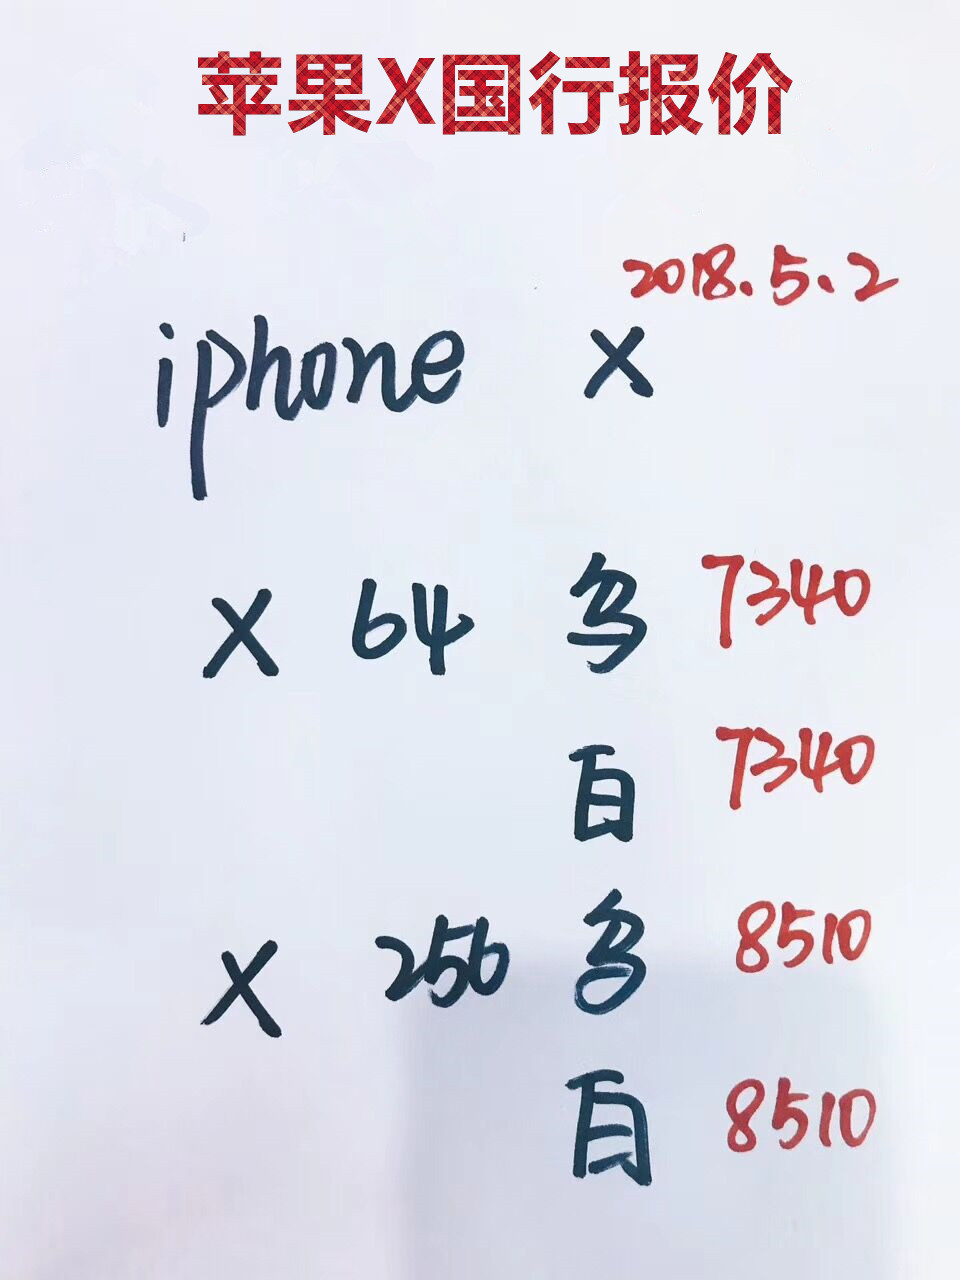 苹果X国行报价
2018.5.2
iphone X
X 64 乌 7340
百 7340
X 256 乌 8510
百 8510